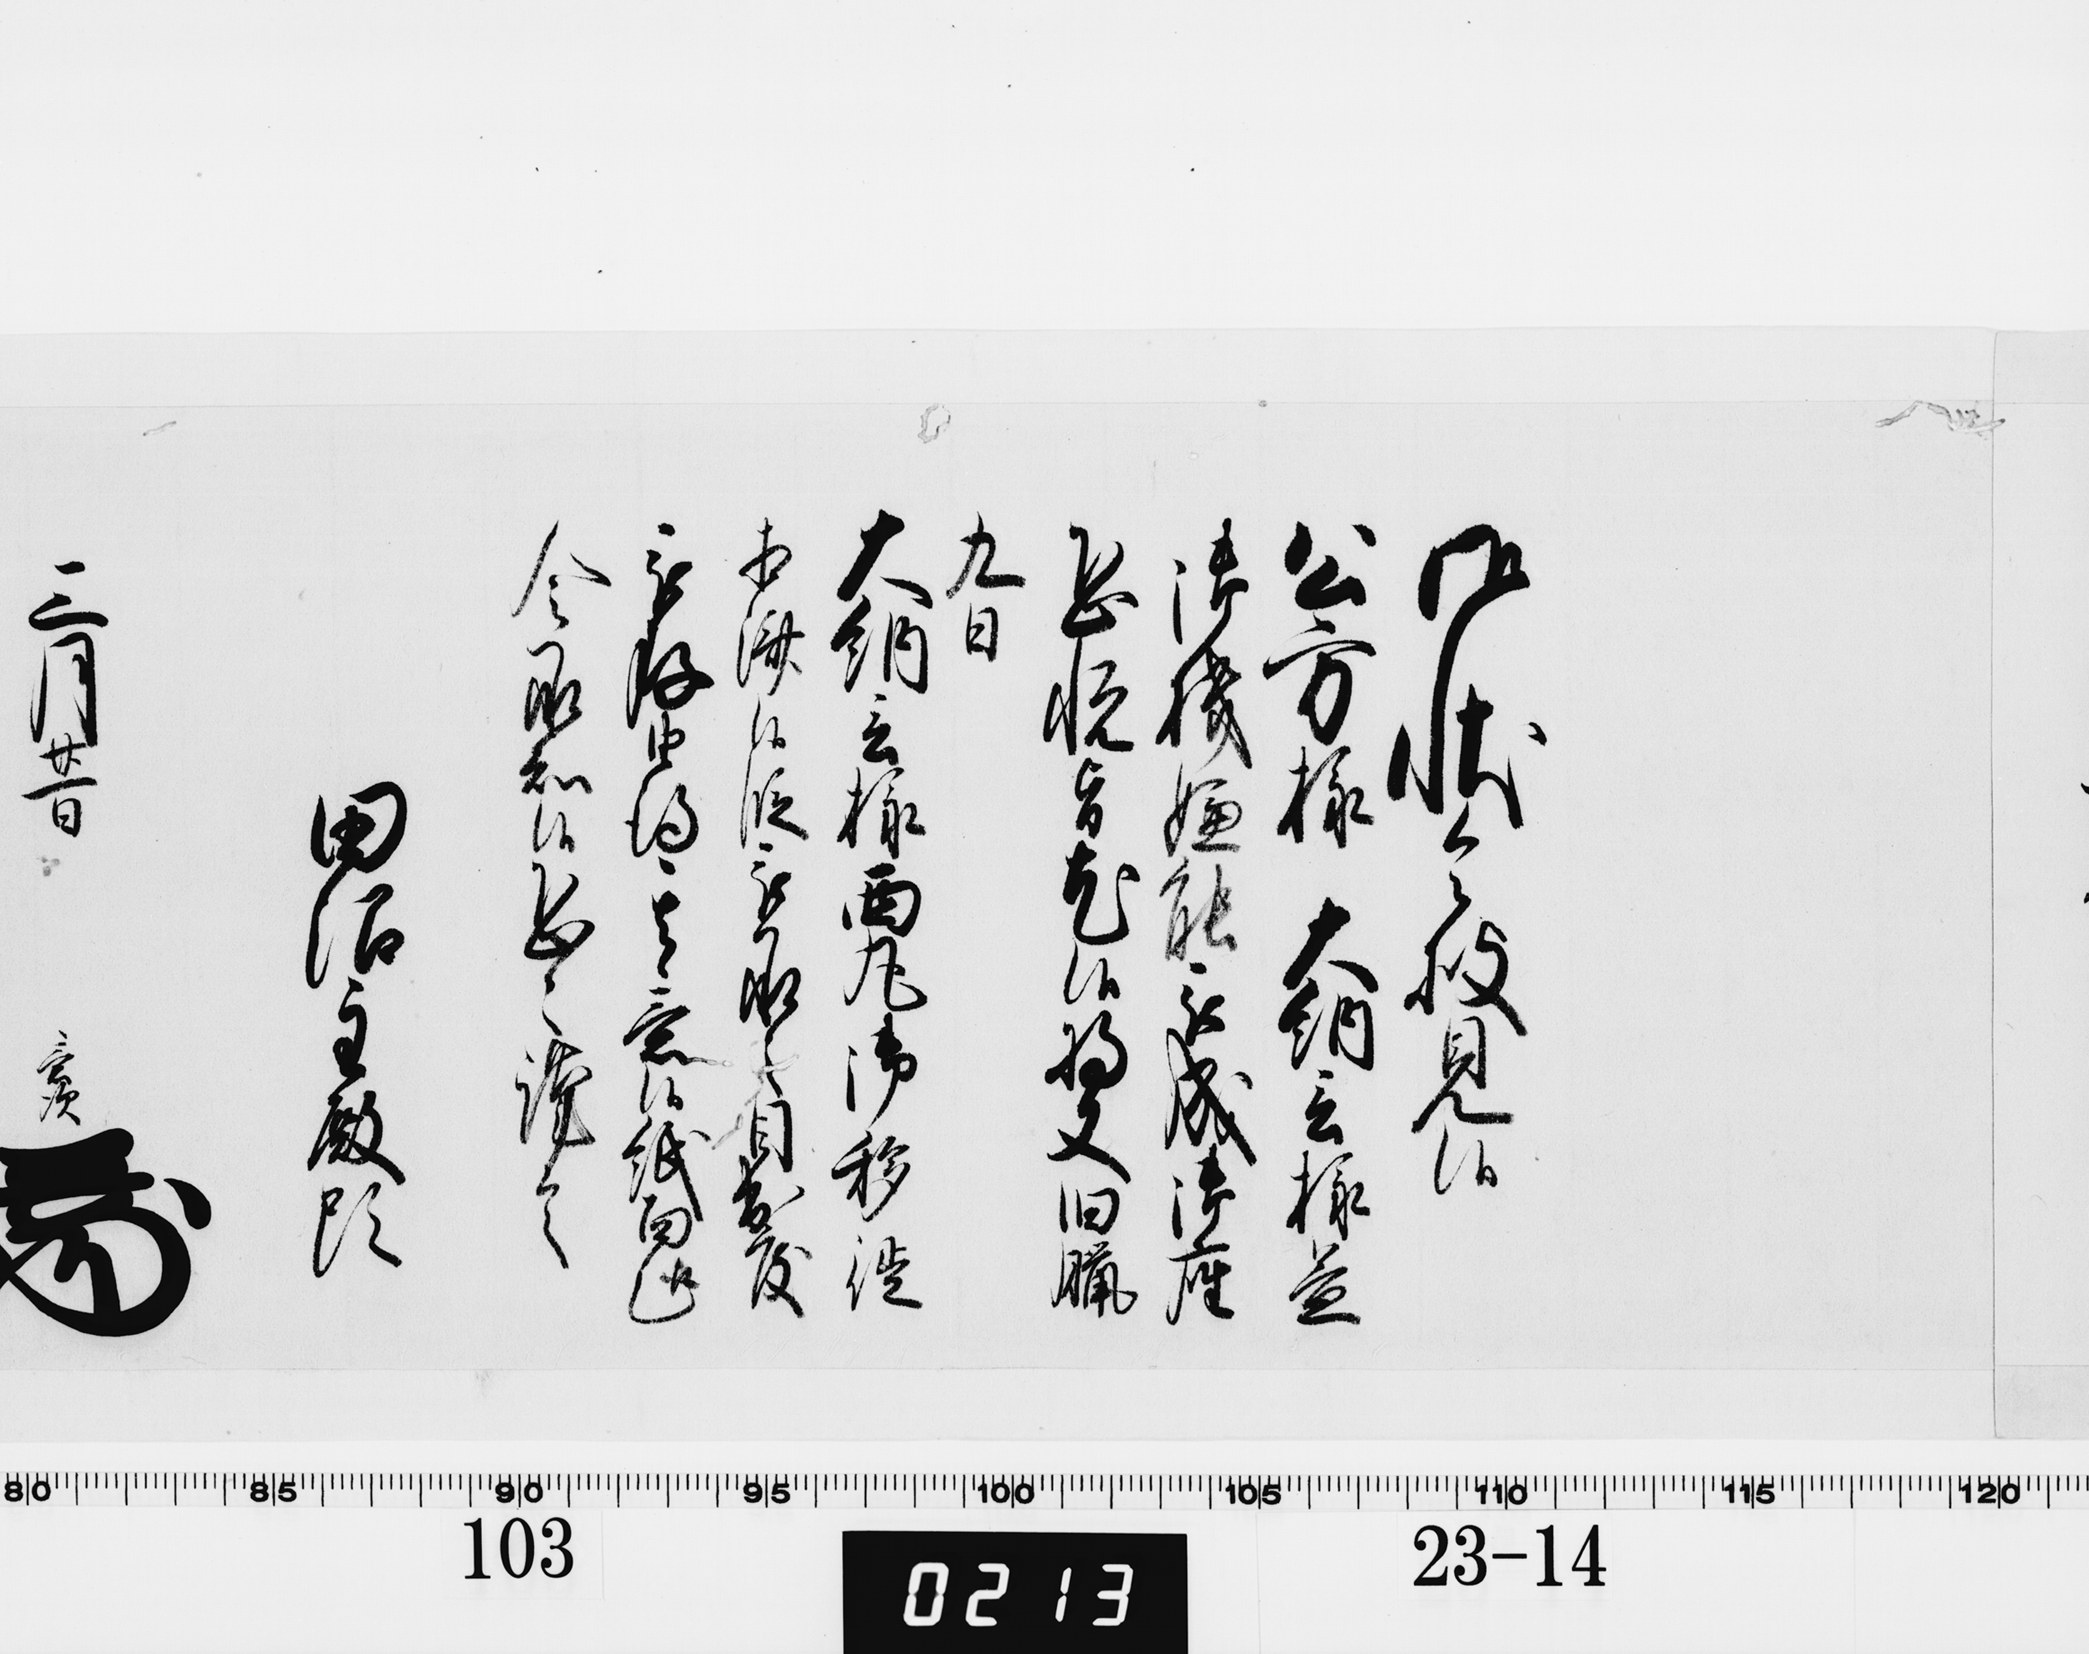 御状令披見候
公方様 大納言様益
御機嫌能被成御座
恐悦旨尤候将又旧臘
九日
大納言様西丸御移徙
相済候段被承之目出度
被存由得其意候紙面趣
令承知候恐々謹言
田沼主殿頭
三月廿一日 意次
80 85 90 95 100 105 110 115 120
103 0213 23-14